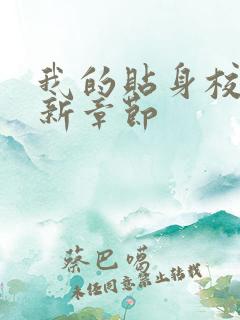 我的貼身校
新章節
蔡巴噶
未经同意禁止转载